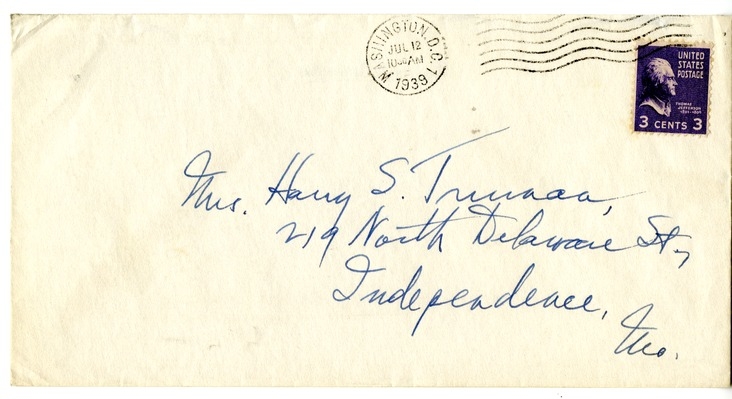 WASHINGTON, D.C. 7
JUL 12
1939
UNITED
STATES
POSTAGE
THOMAS
JEFFERSON
3 CENTS 3
Mrs. Harry S. Truman,
219 North Delaware St.,
Independence,
Mo.